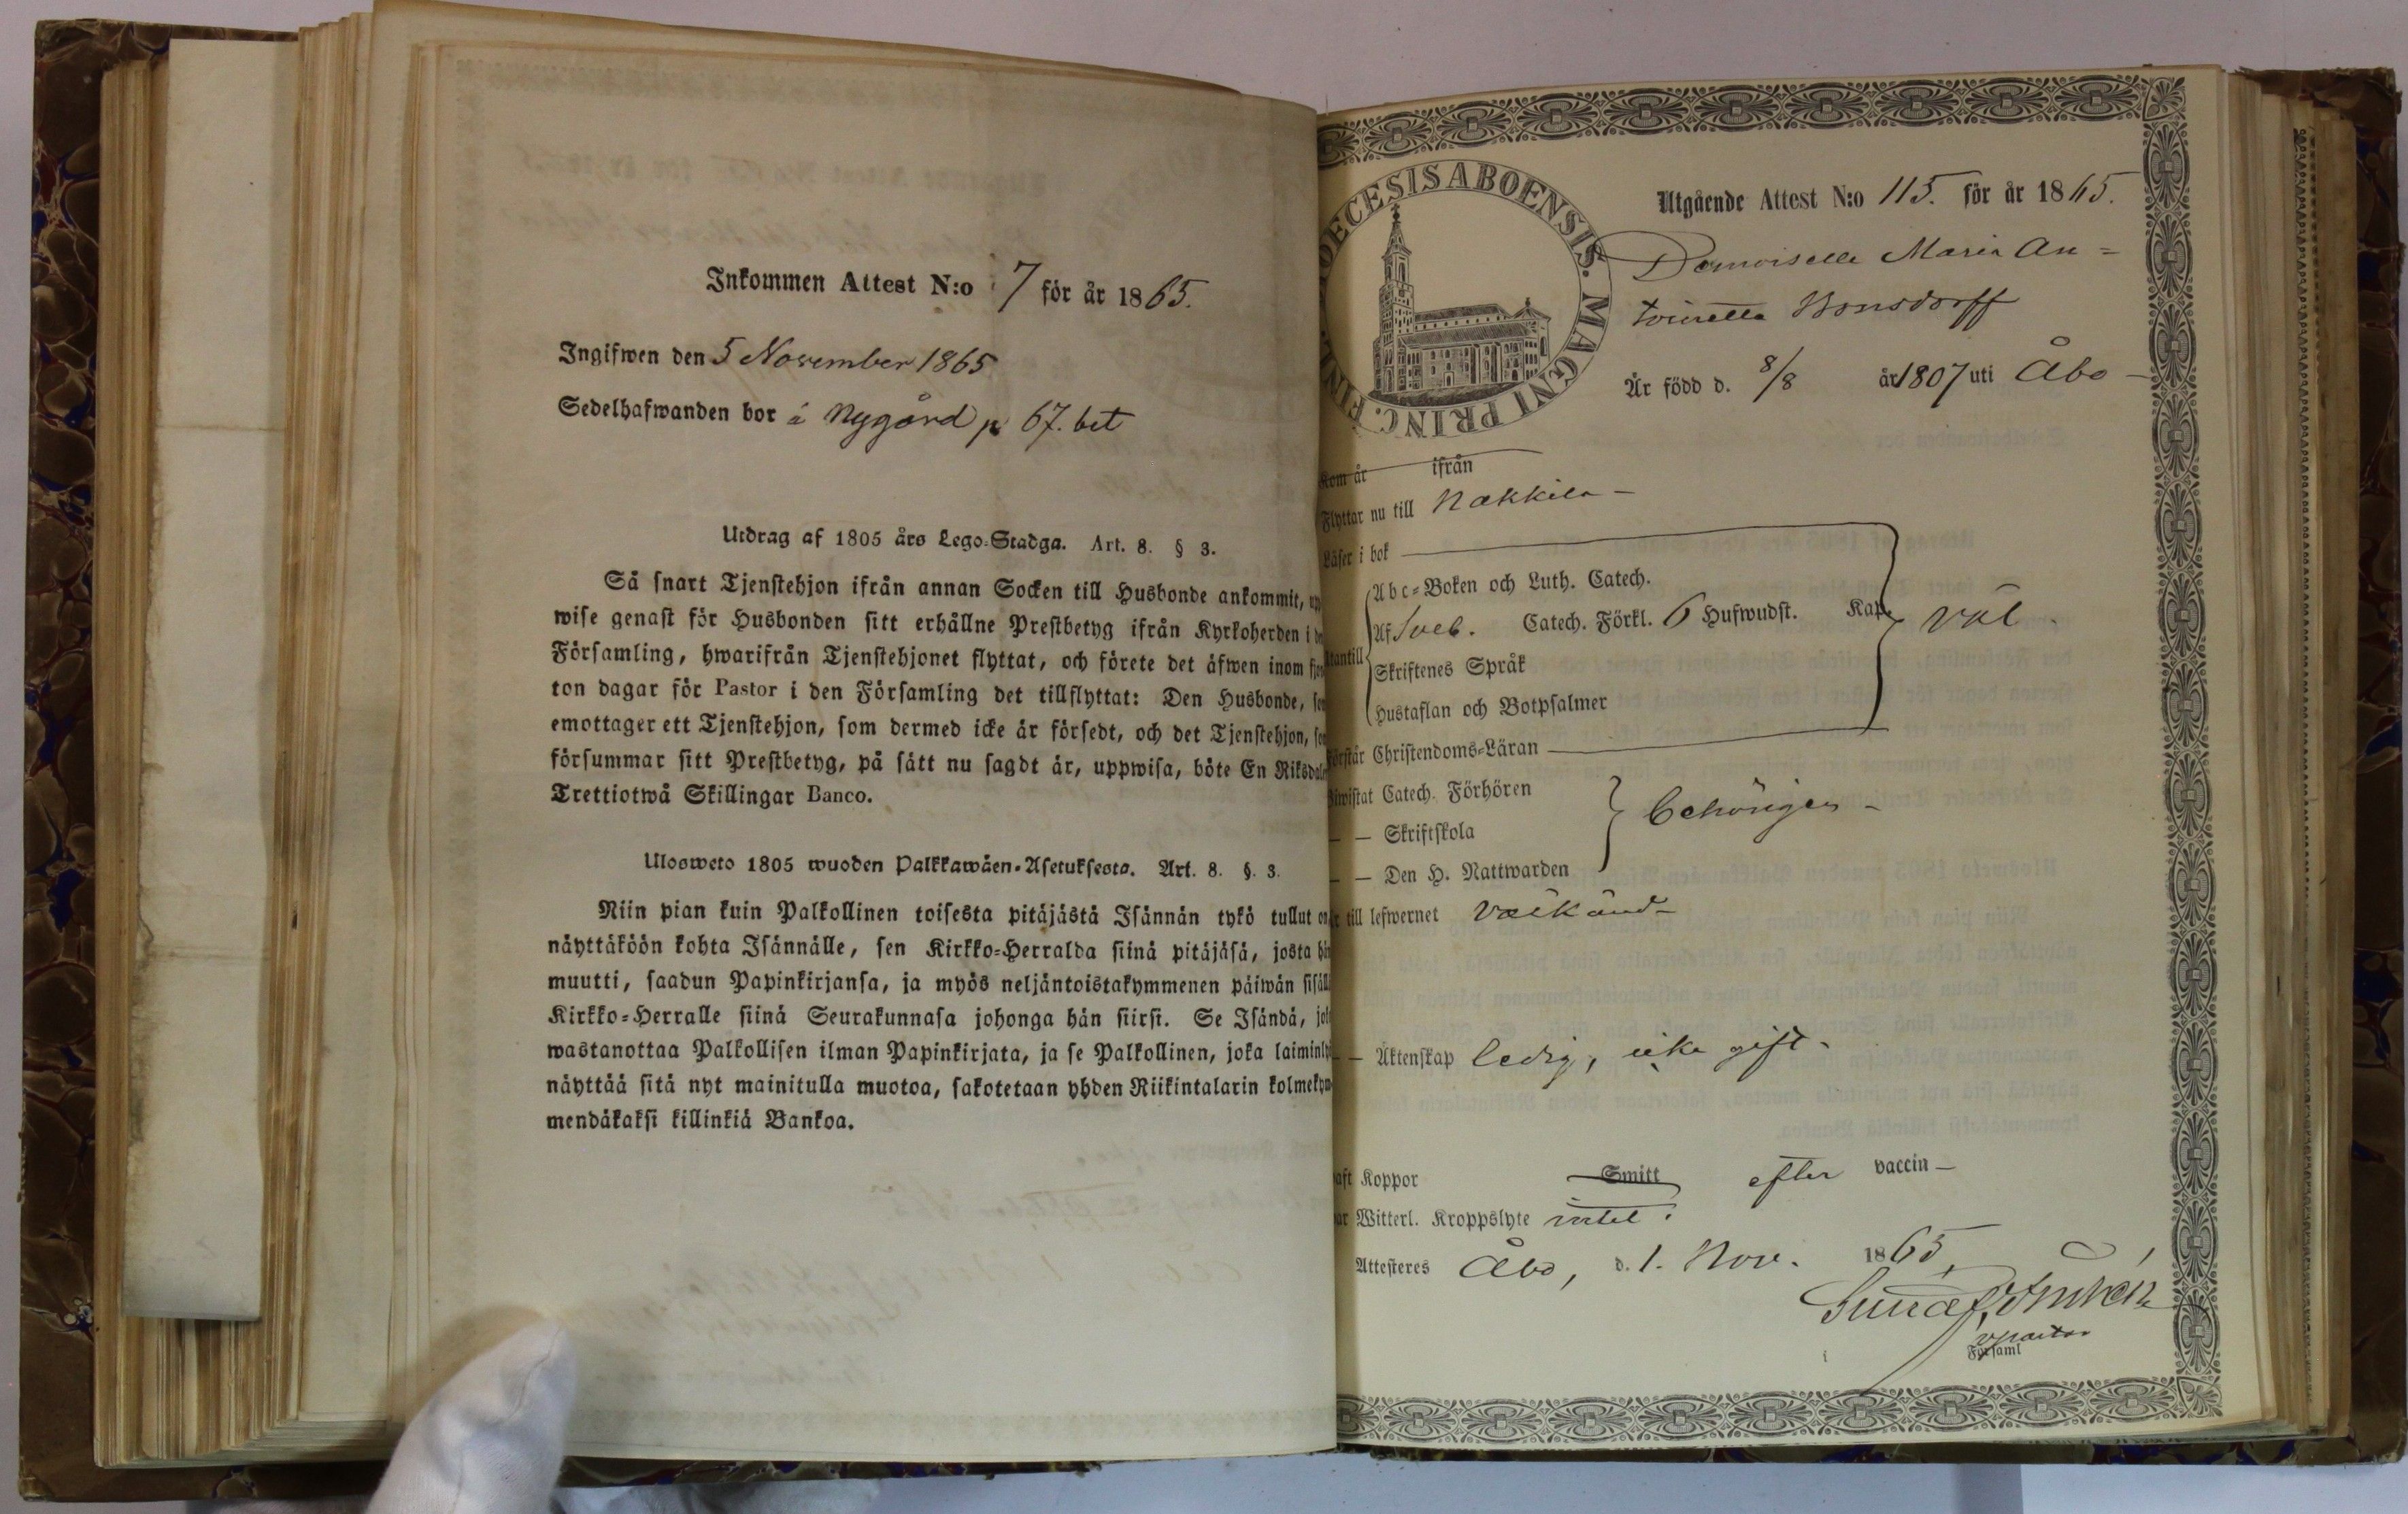 Inkommen Attest N:o 7 för år 1865.
Ingifwen den 5 November 1865
Sedelhafwanden bor å Nygård p 67. bet
Utdrag af 1805 års Lego-Stadga. Art. 8. § 3.
Så snart Tjenstehjon ifrån annan Socken till Husbonde ankommit, up
wise genast för Husbonden sitt erhållne Prestbetyg ifrån Kyrkoherden i de
Församling, hwarifrån Tjenstehjonet flyttat, och förete det äfwen inom fjor
ton dagar för Pastor i den Församling det tillflyttat: Den Husbonde, so
emottager ett Tjenstehjon, som dermed icke är försedt, och det Tjenstehjon, so
försummar sitt Prestbetyg, på sätt nu sagdt är, uppwisa, böte En Riksdale
Trettiotwå Skillingar Banco.
Ulosweto 1805 wuoden Palkkawäen-Asetuksesta. Art. 8. §. 3.
Niin pian kuin Palkollinen toisesta pitäjästä Isännän tykö tullut on
näyttäköön kohta Isännälle, sen Kirkko-Herralda siinä pitäjäsä, josta hän
muutti, saadun Papinkirjansa, ja myös neljäntoistakymmenen päiwän sisäll
Kirkko-Herralle siinä Seurakunnasa johonga hän siirsi. Se Isändä, jok
wastanottaa Palkollisen ilman Papinkirjata, ja se Palkollinen, joka laiminly
näyttää sitä nyt mainitulla muotoa, sakotetaan yhden Riikintalarin kolmekym
mendäkaksi killinkiä Bankoa.
DECESIS ABOENSIS. MAGNI PRINC. FINL.
Utgående Attest N:o 115. för år 1865.
Demoiselle Maria An=
toinetta Bonsdorff
Är född d. 8/8 år 1807 uti Åbo
Kom år ifrån
Flyttar nu till Nakkila
Läser i bok
Abc-Boken och Luth. Catech.
Af Sveb. Catech. Förkl. 6 Hufwudst. Kap. väl
Utantill
Skriftenes Språk
Hustaflan och Botpsalmer
Förstår Christendoms-Läran
Biwistat Catech. Förhören
— — Skriftskola behörigen
— — Den H. Nattwarden
Är till lefwernet välkänd
— — Äktenskap ledig, icke gift.
aft Koppor Smitt efter vaccin
ar Witterl. Kroppslyte intet.
Attesteres Åbo, d. 1. Nov. 1865,
v pastor
i Församl